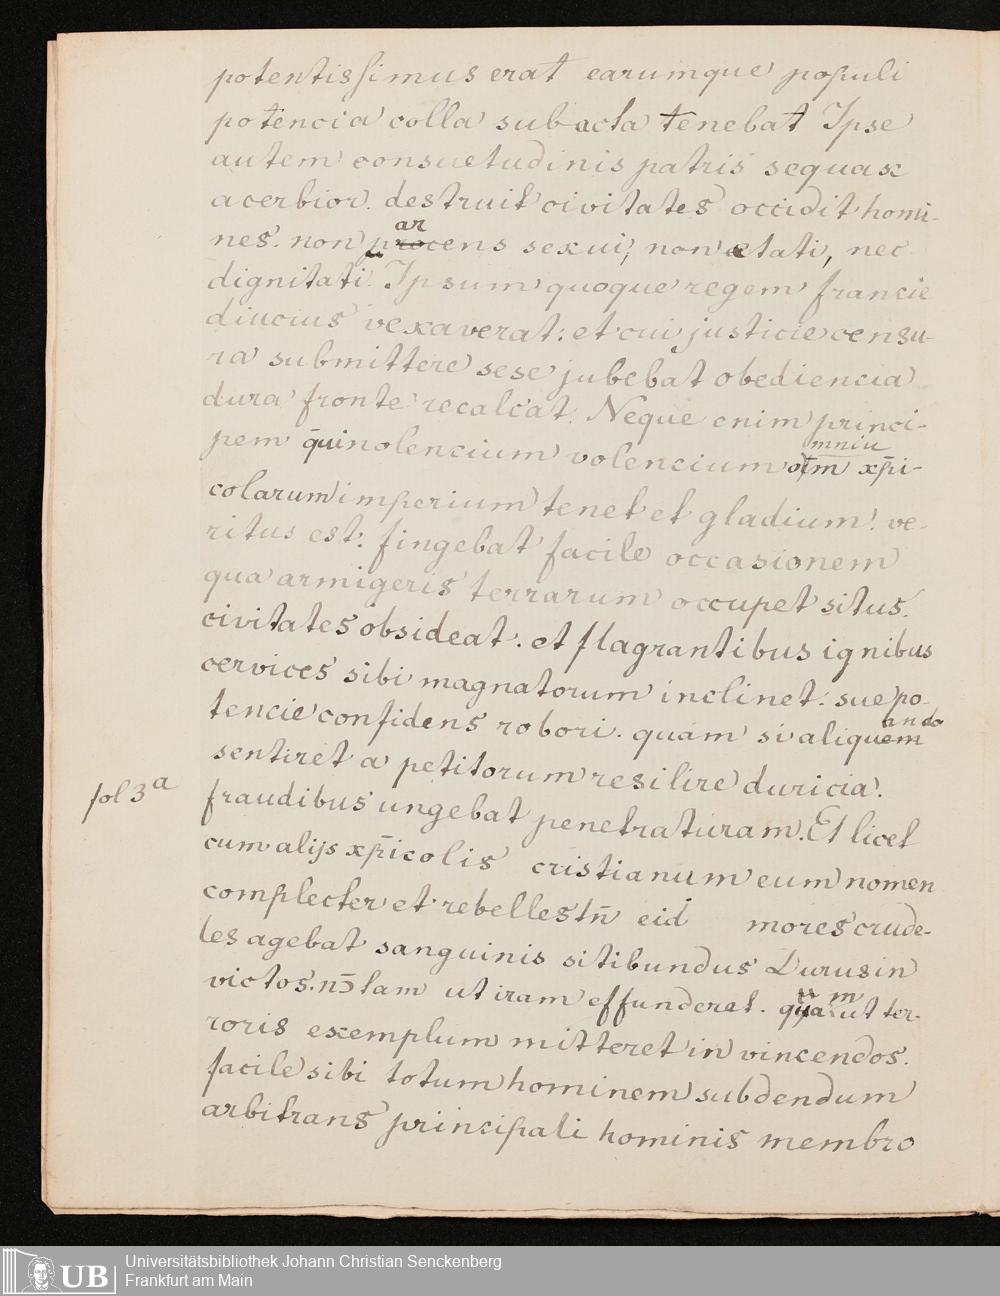 potentissimus erat earumque populi
potencia colla subacta tenebat Ipse
autem consuetudinis patris sequax
acerbior. destruit civitates occidit homi-
ar
nes. non procens sexui, non etati, nec
dignitati. Ipsum quoque regem francie
diucius vexaverat: et cui justicie censu-
ra submittere sese jubebat obediencia
dura fronte recalcat. Neque enim princi-
mniu
pem qui nolencium volencium om xp̄i-
colarum imperium tenet et gladium! ve-
ritus est: fingebat facile occasionem
qua armigeris terrarum occupet situs!
civitates obsideat. et flagrantibus ignibus
cervices sibi magnatorum inclinet. sue po-
ando
tencie confidens robori. quam si aliquem
sentiret a petitorum resilire duricia!
fol 3a
fraudibus ungebat penetraturam. Et licet
cum alijs xp̄icolis cristianum eum nomen
complecter et rebelles tn̄ eid mores crude-
les agebat sanguinis sitibundus Durus in
victos. nō tam ut iram effunderet. qua m ut ter-
roris exemplum mitteret in vincendos.
facile sibi totum hominem subdendum
arbitrans principali hominis membro
UB
Universitätsbibliothek Johann Christian Senckenberg
Frankfurt am Main